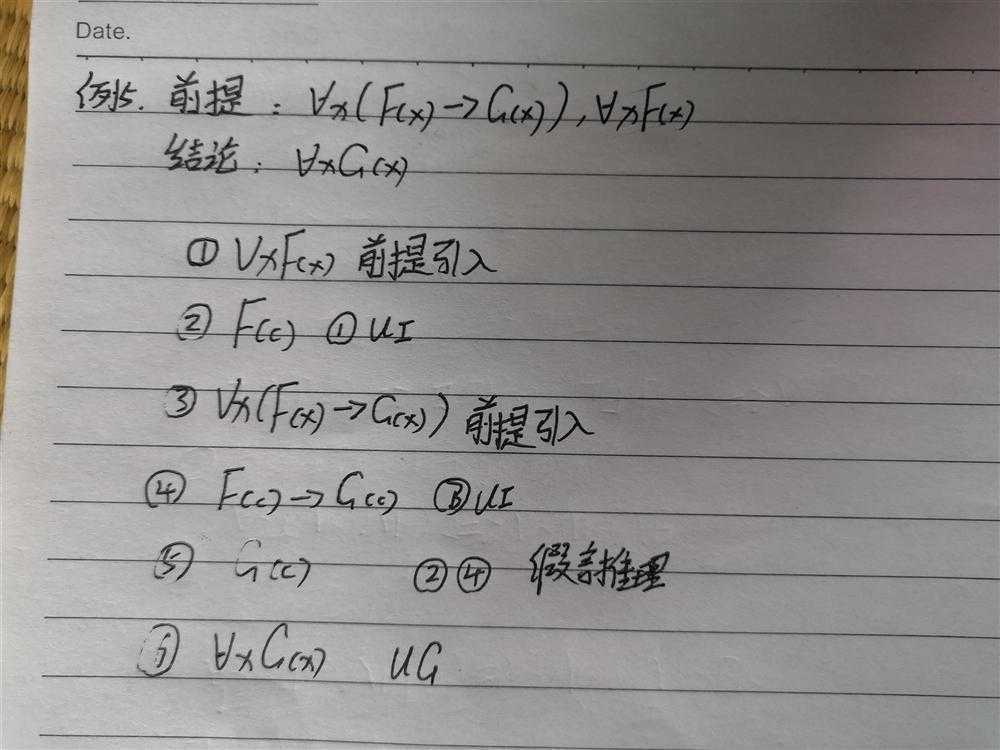 Date.
例5. 前提：∀x(F(x)→G(x)),∀xF(x)
结论：∀xG(x)
① ∀xF(x) 前提引入
② F(c) ①UI
③ ∀x(F(x)→G(x)) 前提引入
④ F(c)→G(c) ③UI
⑤ G(c) ②④ 假言推理
⑥ ∀xG(x) UG